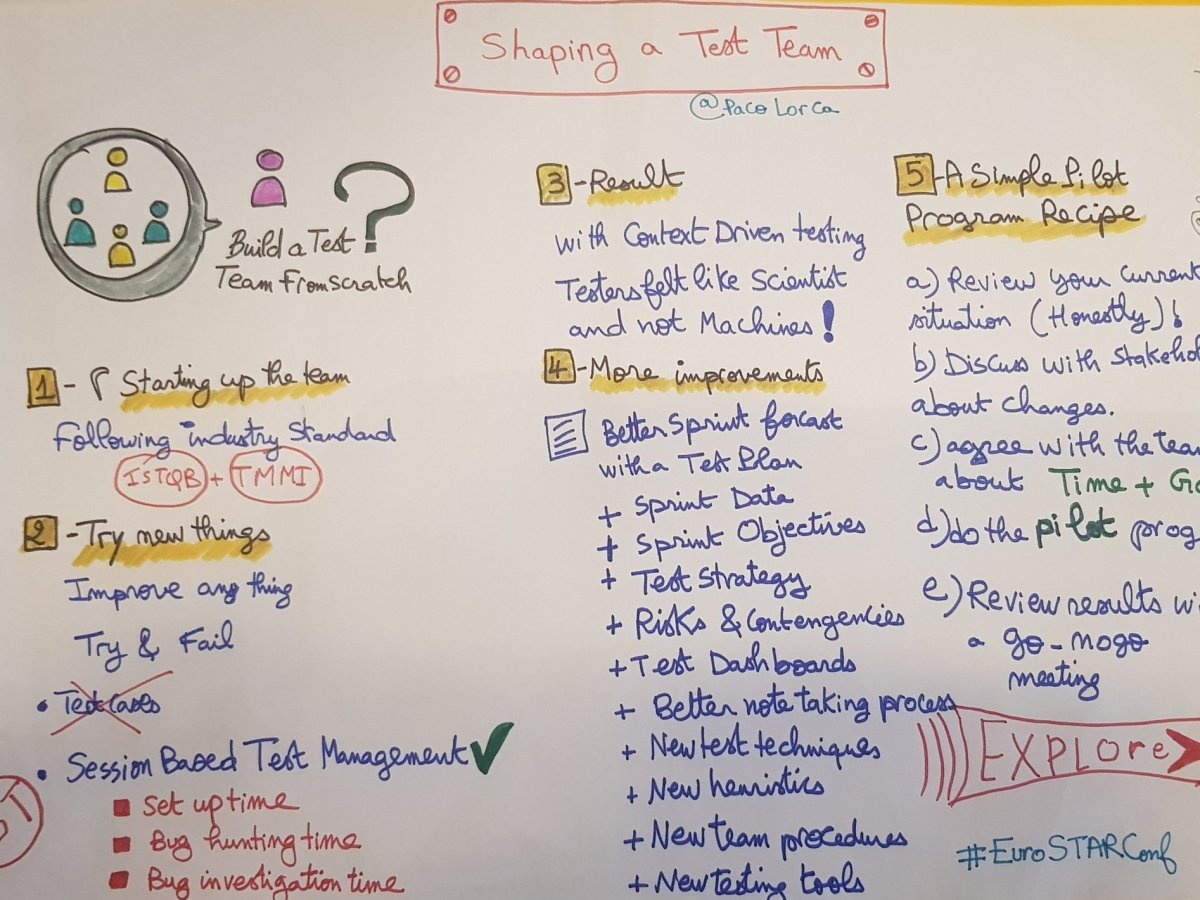 Shaping a Test Team
@Paco Lorca
Build a Test
Team From scratch
?
1 - Starting up the team
Following industry Standard
ISTQB + TMMI
2 - Try new things
Improve any thing
Try & Fail
• Test cases
• Session Based Test Management
Set up time
Bug hunting time
Bug investigation time
3 - Result
with Context Driven testing
Testers felt like Scientist
and not Machines!
4 - More improvements
Better Sprint forcast
with a Test Plan
+ Sprint Data
+ Sprint Objectives
+ Test Strategy
+ Risks & Contengencies
+ Test Dashboards
+ Better note taking process
+ New test techniques
+ New heuristics
+ New team procedures
+ New testing tools
5 - A Simple Pilot
Program Recipe
a) Review your current
situation (Honestly)!
b) Discuss with Stakehol
about changes.
c) agree with the tea
about Time + Go
d) do the pilot prog
e) Review results wi
a go-nogo
meeting
EXPLORE
#EuroSTARConf